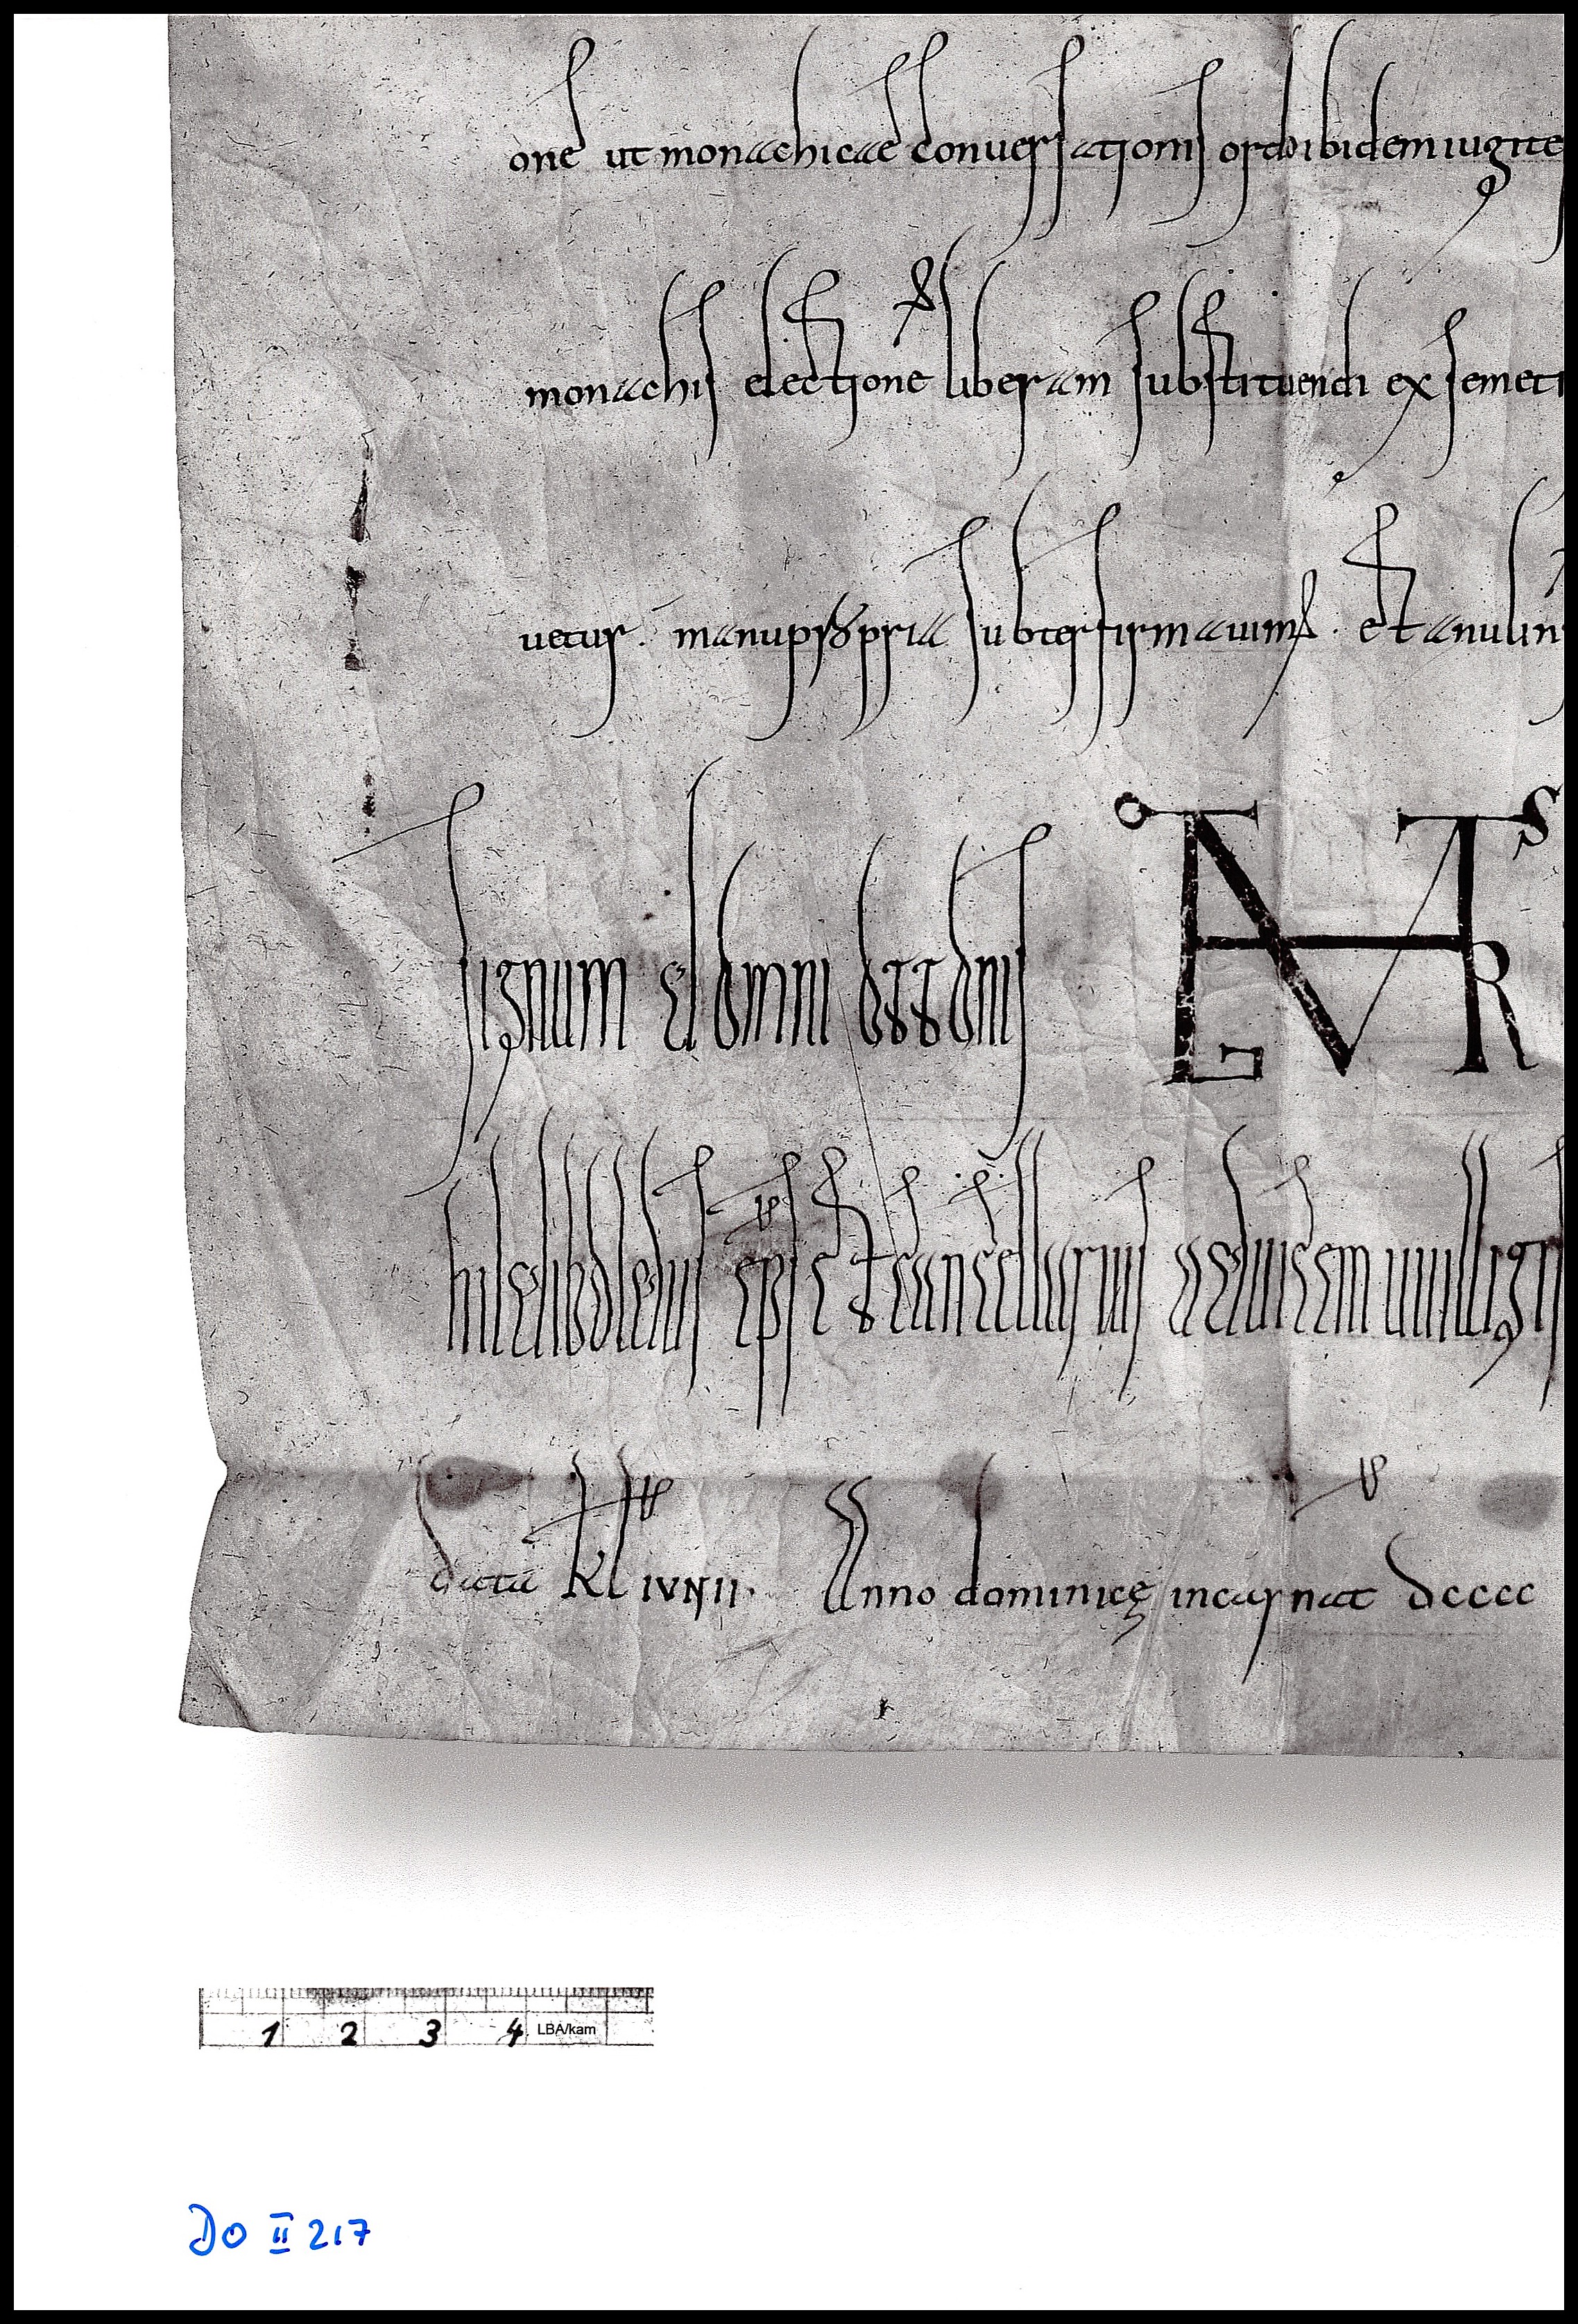 one ut monachicae conuersationis ordo ibidem iugite
monachis electione liberam substituendi ex semeti
uetur. manu ppria subterfirmauim et anulin
signum domni ottonis
O S R
hildiboldus eps et cancellarius aduicem uuilligis
data kl iunii. Anno dominicę incarnat dcccc
1 2 3 4 LBA/kam
DO II 217